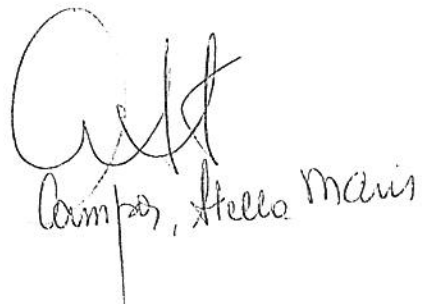 Campos, Stella Maris